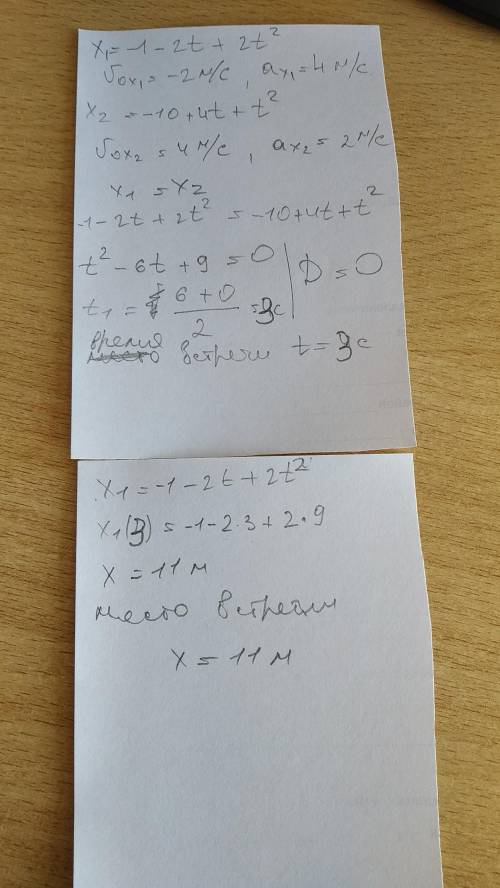 x₁ = -1 - 2t + 2t²
v₀ₓ₁ = -2 м/с, aₓ₁ = 4 м/с
x₂ = -10 + 4t + t²
v₀ₓ₂ = 4 м/с, aₓ₂ = 2 м/с
x₁ = x₂
-1 - 2t + 2t² = -10 + 4t + t²
t² - 6t + 9 = 0 | D = 0
t₁ = (6 + 0)/2 = 3с
время
место встречи t = 3с
x₁ = -1 - 2t + 2t²
x₁(3) = -1 - 2·3 + 2·9
x = 11 м
место встречи
x = 11 м